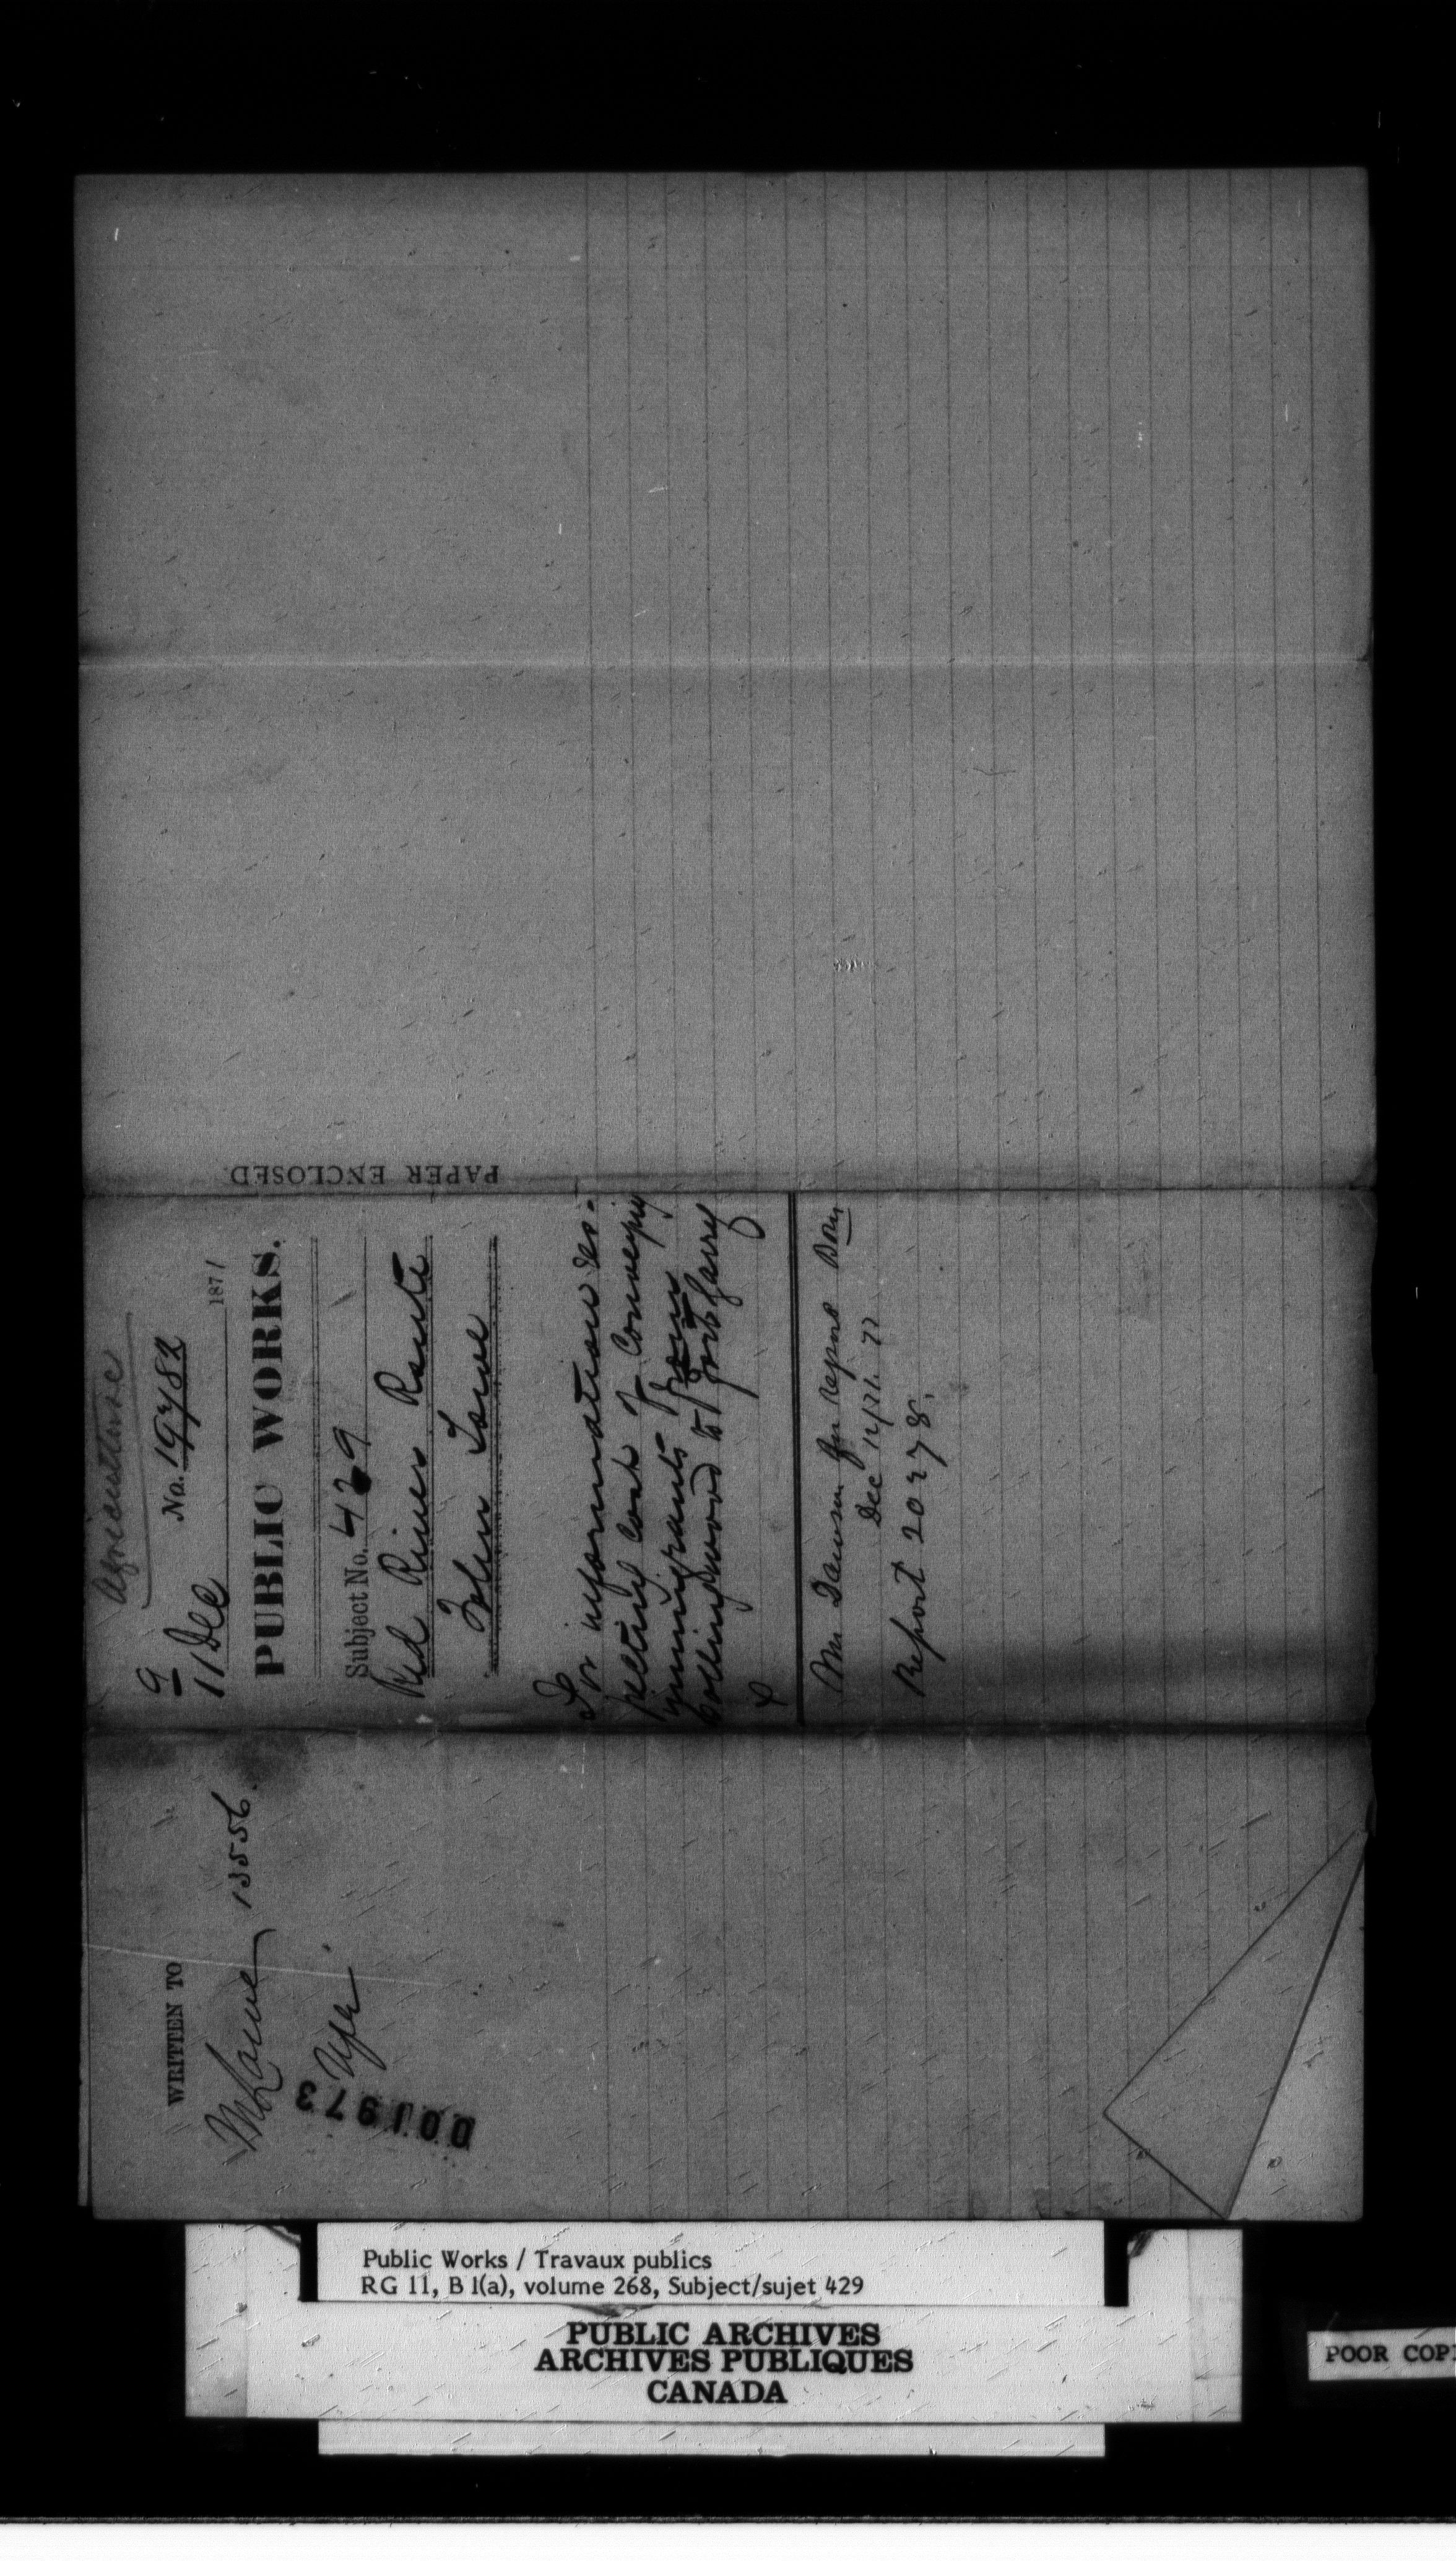 Agriculture
9
11 Dec
No. 19482
1871
PUBLIC WORKS.
Subject No. 429
Red River Route
John Lowe
For information res-
pecting cost of conveying
immigrants from
Collingwood to fort Garry
&
Mr Dawson for report
Dec 12/71
Report 20278.
PAPER ENCLOSED.
WRITTEN TO
Mr Lowe 13556.
001973
Public Works / Travaux publics
RG 11, B 1(a), volume 268, Subject/sujet 429
PUBLIC ARCHIVES
ARCHIVES PUBLIQUES
CANADA
POOR COP